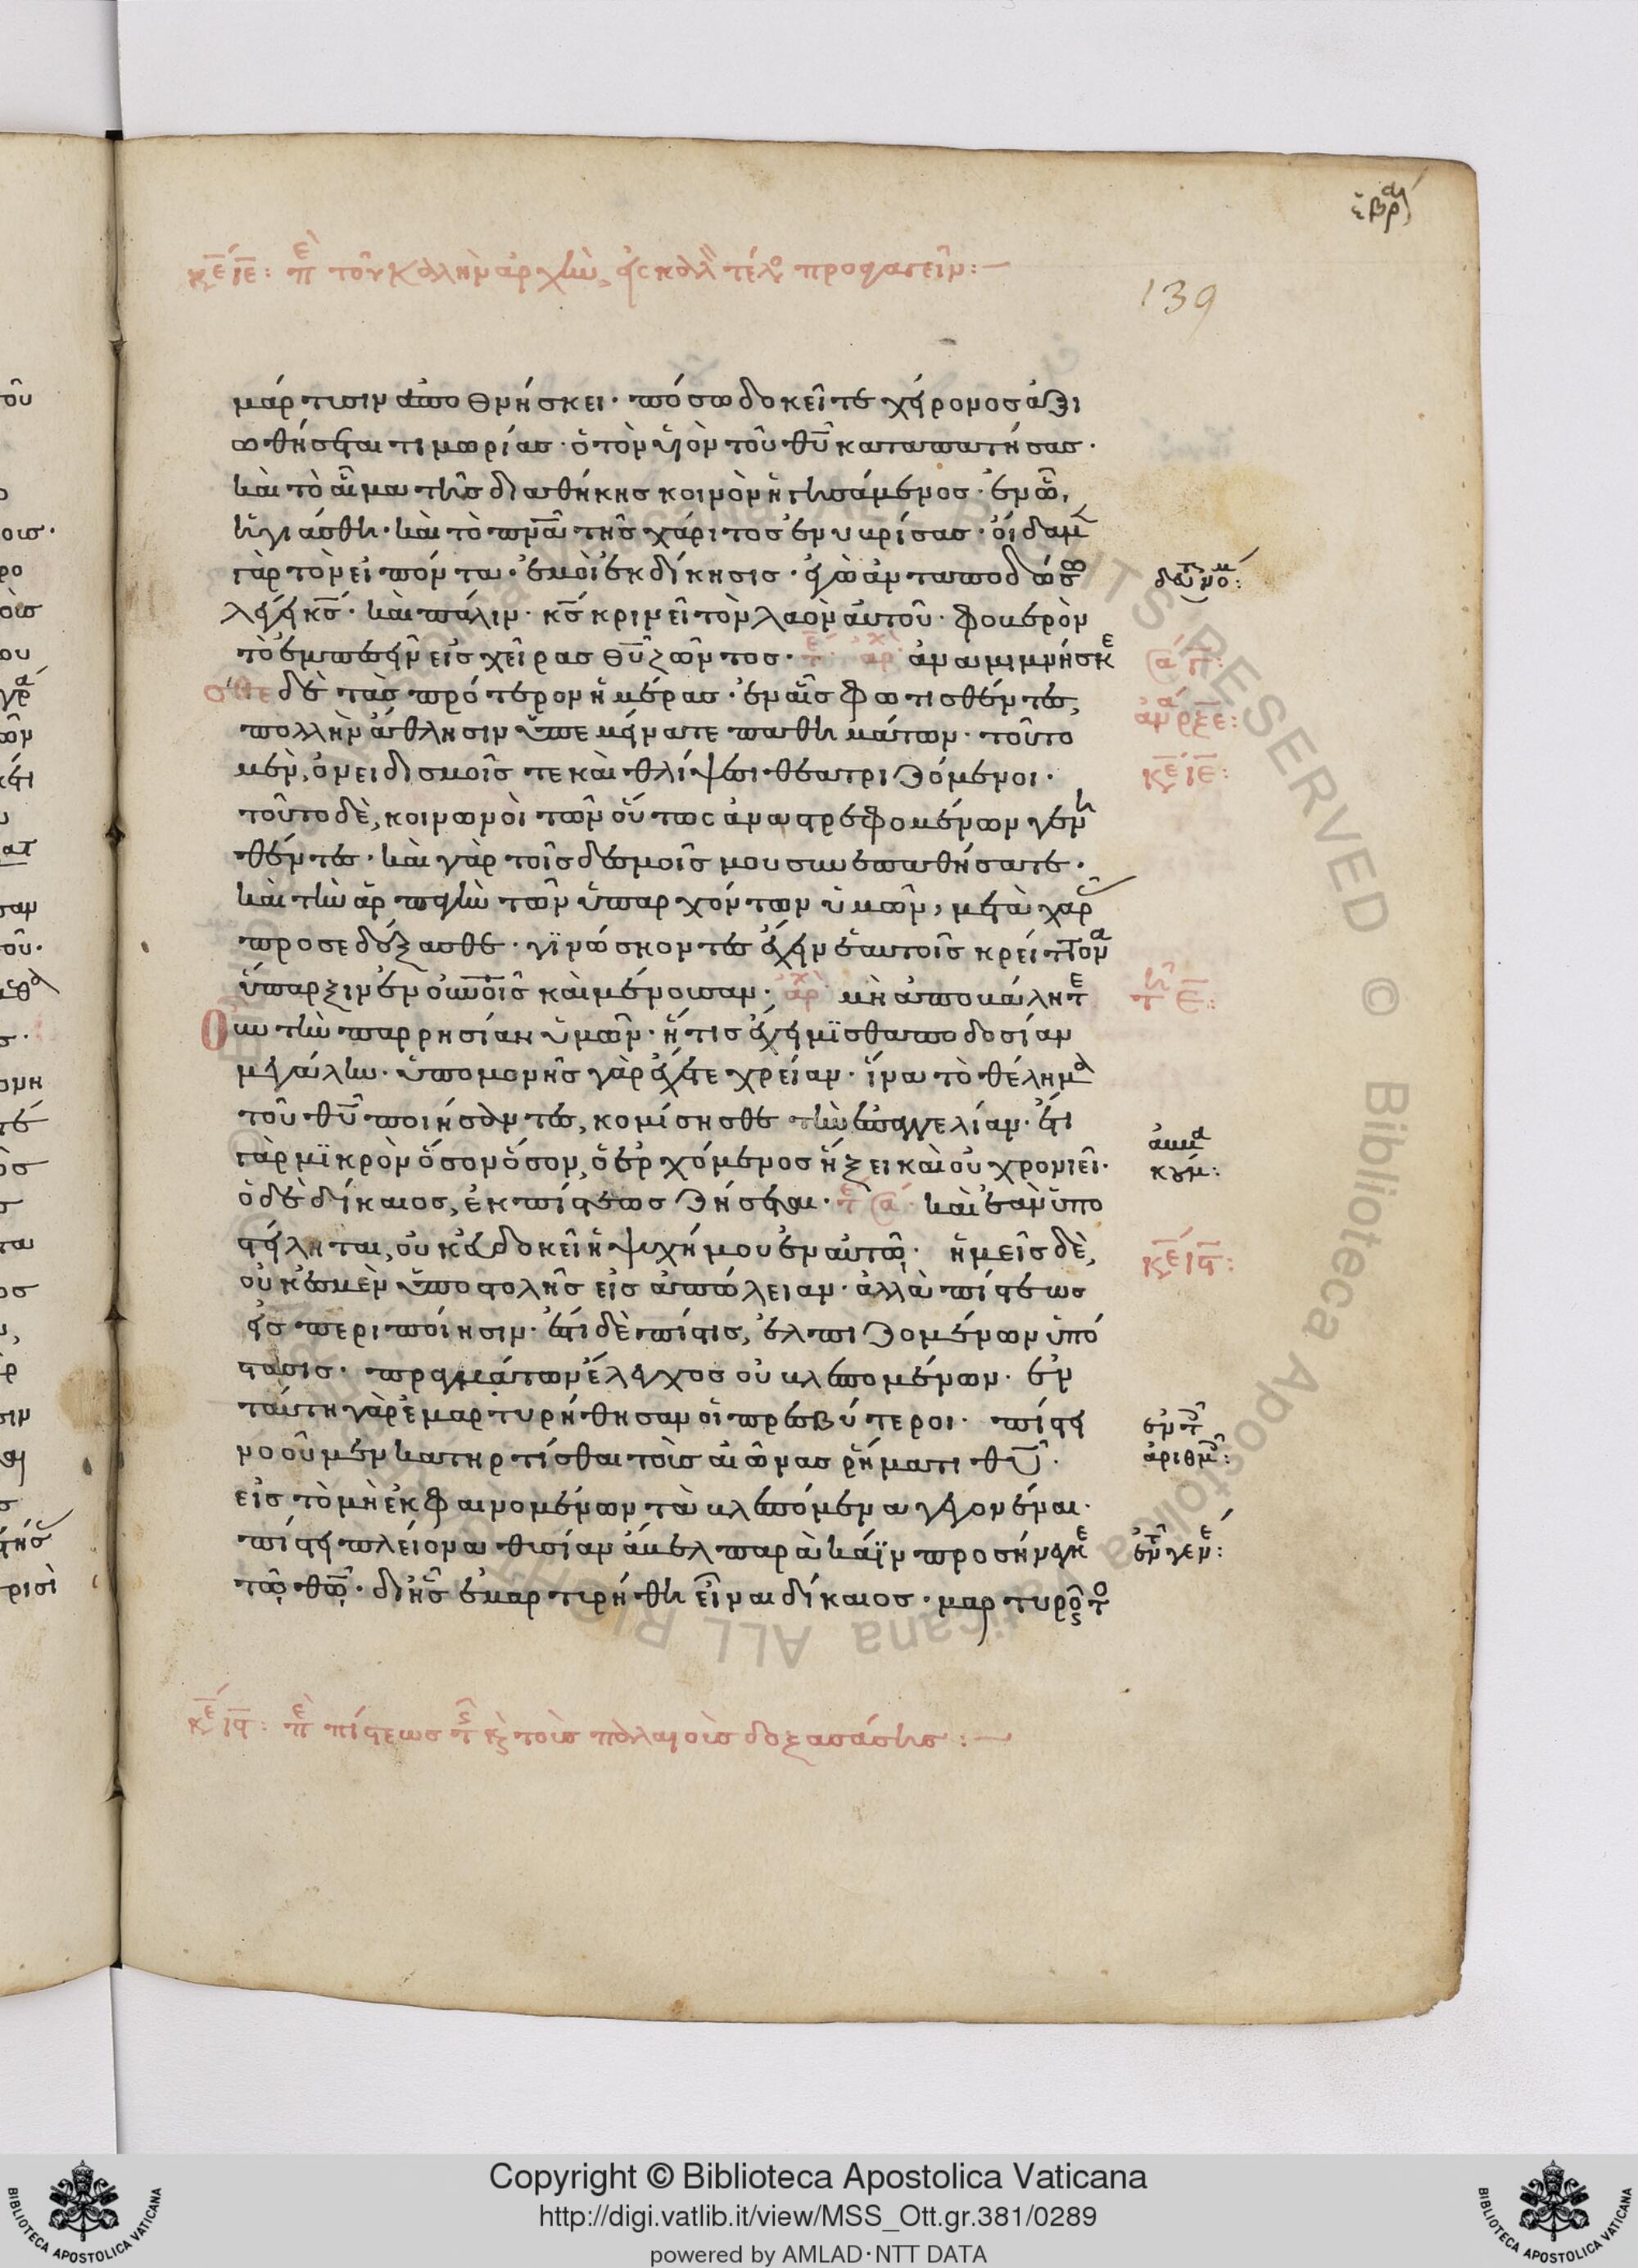 ἑβραι
κε ιε: πε τοῦ καλὴν ἀρχὴν, εἰς καλλ τέλο προφατεῖν:—
139
μάρτυσιν ἀποθνήσκει· πόσω δοκεῖτε χείρονος ἀξι
ωθήσεται τιμωρίας· ὁ τὸν υἱὸν τοῦ θυ καταπατήσας·
καὶ τὸ αἷμα τῆς διαθήκης κοινὸν ἡγησάμενος· ἐν ᾧ,
ἡγιάσθη· καὶ τὸ πνα τῆς χάριτος ἐνυβρίσας· οἴδαμ
γὰρ τὸν εἰπόντα· ἐμοὶ ἐκδίκησις· ἐγὼ ἀνταποδώσ
λέγει κς· καὶ πάλιν· κς κρινεῖ τὸν λαὸν αὐτοῦ· φοβερὸν
δευτ νομ:
τὸ ἐμπεσεῖν εἰς χεῖρας θυ ζῶντος· τε αρχ ἀναμιμνήσκε
σθε δὲ τὰς πρότερον ἡμέρας· ἐν αἷς φωτισθέντες,
πολλὴν ἄθλησιν ὑπεμείνατε παθημάτων· τοῦτο
μὲν, ὀνειδισμοῖς τε καὶ θλίψεσι θεατριζόμενοι·
κε ιε:
τοῦτο δὲ, κοινωνοὶ τῶν οὕτως ἀναστρεφομένων γενη
θέντες· καὶ γὰρ τοῖς δεσμοῖς μου συνεπαθήσατε·
καὶ τὴν ἁρπαγὴν τῶν ὑπαρχόντων ὑμῶν, μετὰ χαρ
προσεδέξασθε· γϊνώσκοντες ἔχειν ἑαυτοῖς κρείττονα
ὕπαρξιν ἐν οὐνοῖς καὶ μένουσαν· αρχ μὴ ἀποβάλητε
οὖν τὴν παρρησίαν ὑμῶν· ἥτις ἔχει μϊσθαποδοσίαν
μεγάλην· ὑπομονῆς γὰρ ἔχετε χρείαν· ἵνα τὸ θέλημα
τοῦ θυ ποιήσαντες, κομίσησθε τὴν ἐπαγγελίαν· ἔτι
γὰρ μϊκρὸν ὅσον ὅσον, ὁ ἐρχόμενος ἥξει καὶ οὐ χρονιεῖ·
ἀββα
κουμ:
ὁ δὲ δίκαιος, ἐκ πίστεως ζήσεται· καὶ ἐὰν ὑπο
στείληται, οὐκ εὐδοκεῖ ἡ ψυχή μου ἐν αὐτῷ· ἡμεῖς δὲ,
κε ις:
οὐκ ἐσμὲν ὑποστολῆς εἰς ἀπώλειαν· ἀλλὰ πίστεως
εἰς περιποίησιν· ἔστι δὲ πίστις, ἐλπιζομένων ὑπό
στασις· πραγμάτων ἔλεγχος οὐ βλεπομένων· ἐν
ταύτη γὰρ ἐμαρτυρήθησαν οἱ πρεσβύτεροι· πίστει
νοοῦμεν κατηρτίσθαι τοὺς αἰῶνας ῥήματι θυ·
ἐν τ
ἀριθμ:
εἰς τὸ μὴ ἐκ φαινομένων τὰ βλεπόμενα γεγονέναι·
πίστει πλείονα θυσίαν ἄβελ παρὰ κάϊν προσήνεγκε
ἐν τ γεν:
τῷ θῷ· δι᾽ ἧς ἐμαρτυρήθη εἶναι δίκαιος· μαρτυροῦντο
κε ις: πε πίστεως τ καὶ τοὺς παλαιοὺς δοξασάσης:—
Copyright © Biblioteca Apostolica Vaticana
http://digi.vatlib.it/view/MSS_Ott.gr.381/0289
powered by AMLAD·NTT DATA
BIBLIOTECA APOSTOLICA VATICANA
BIBLIOTECA APOSTOLICA VATICANA